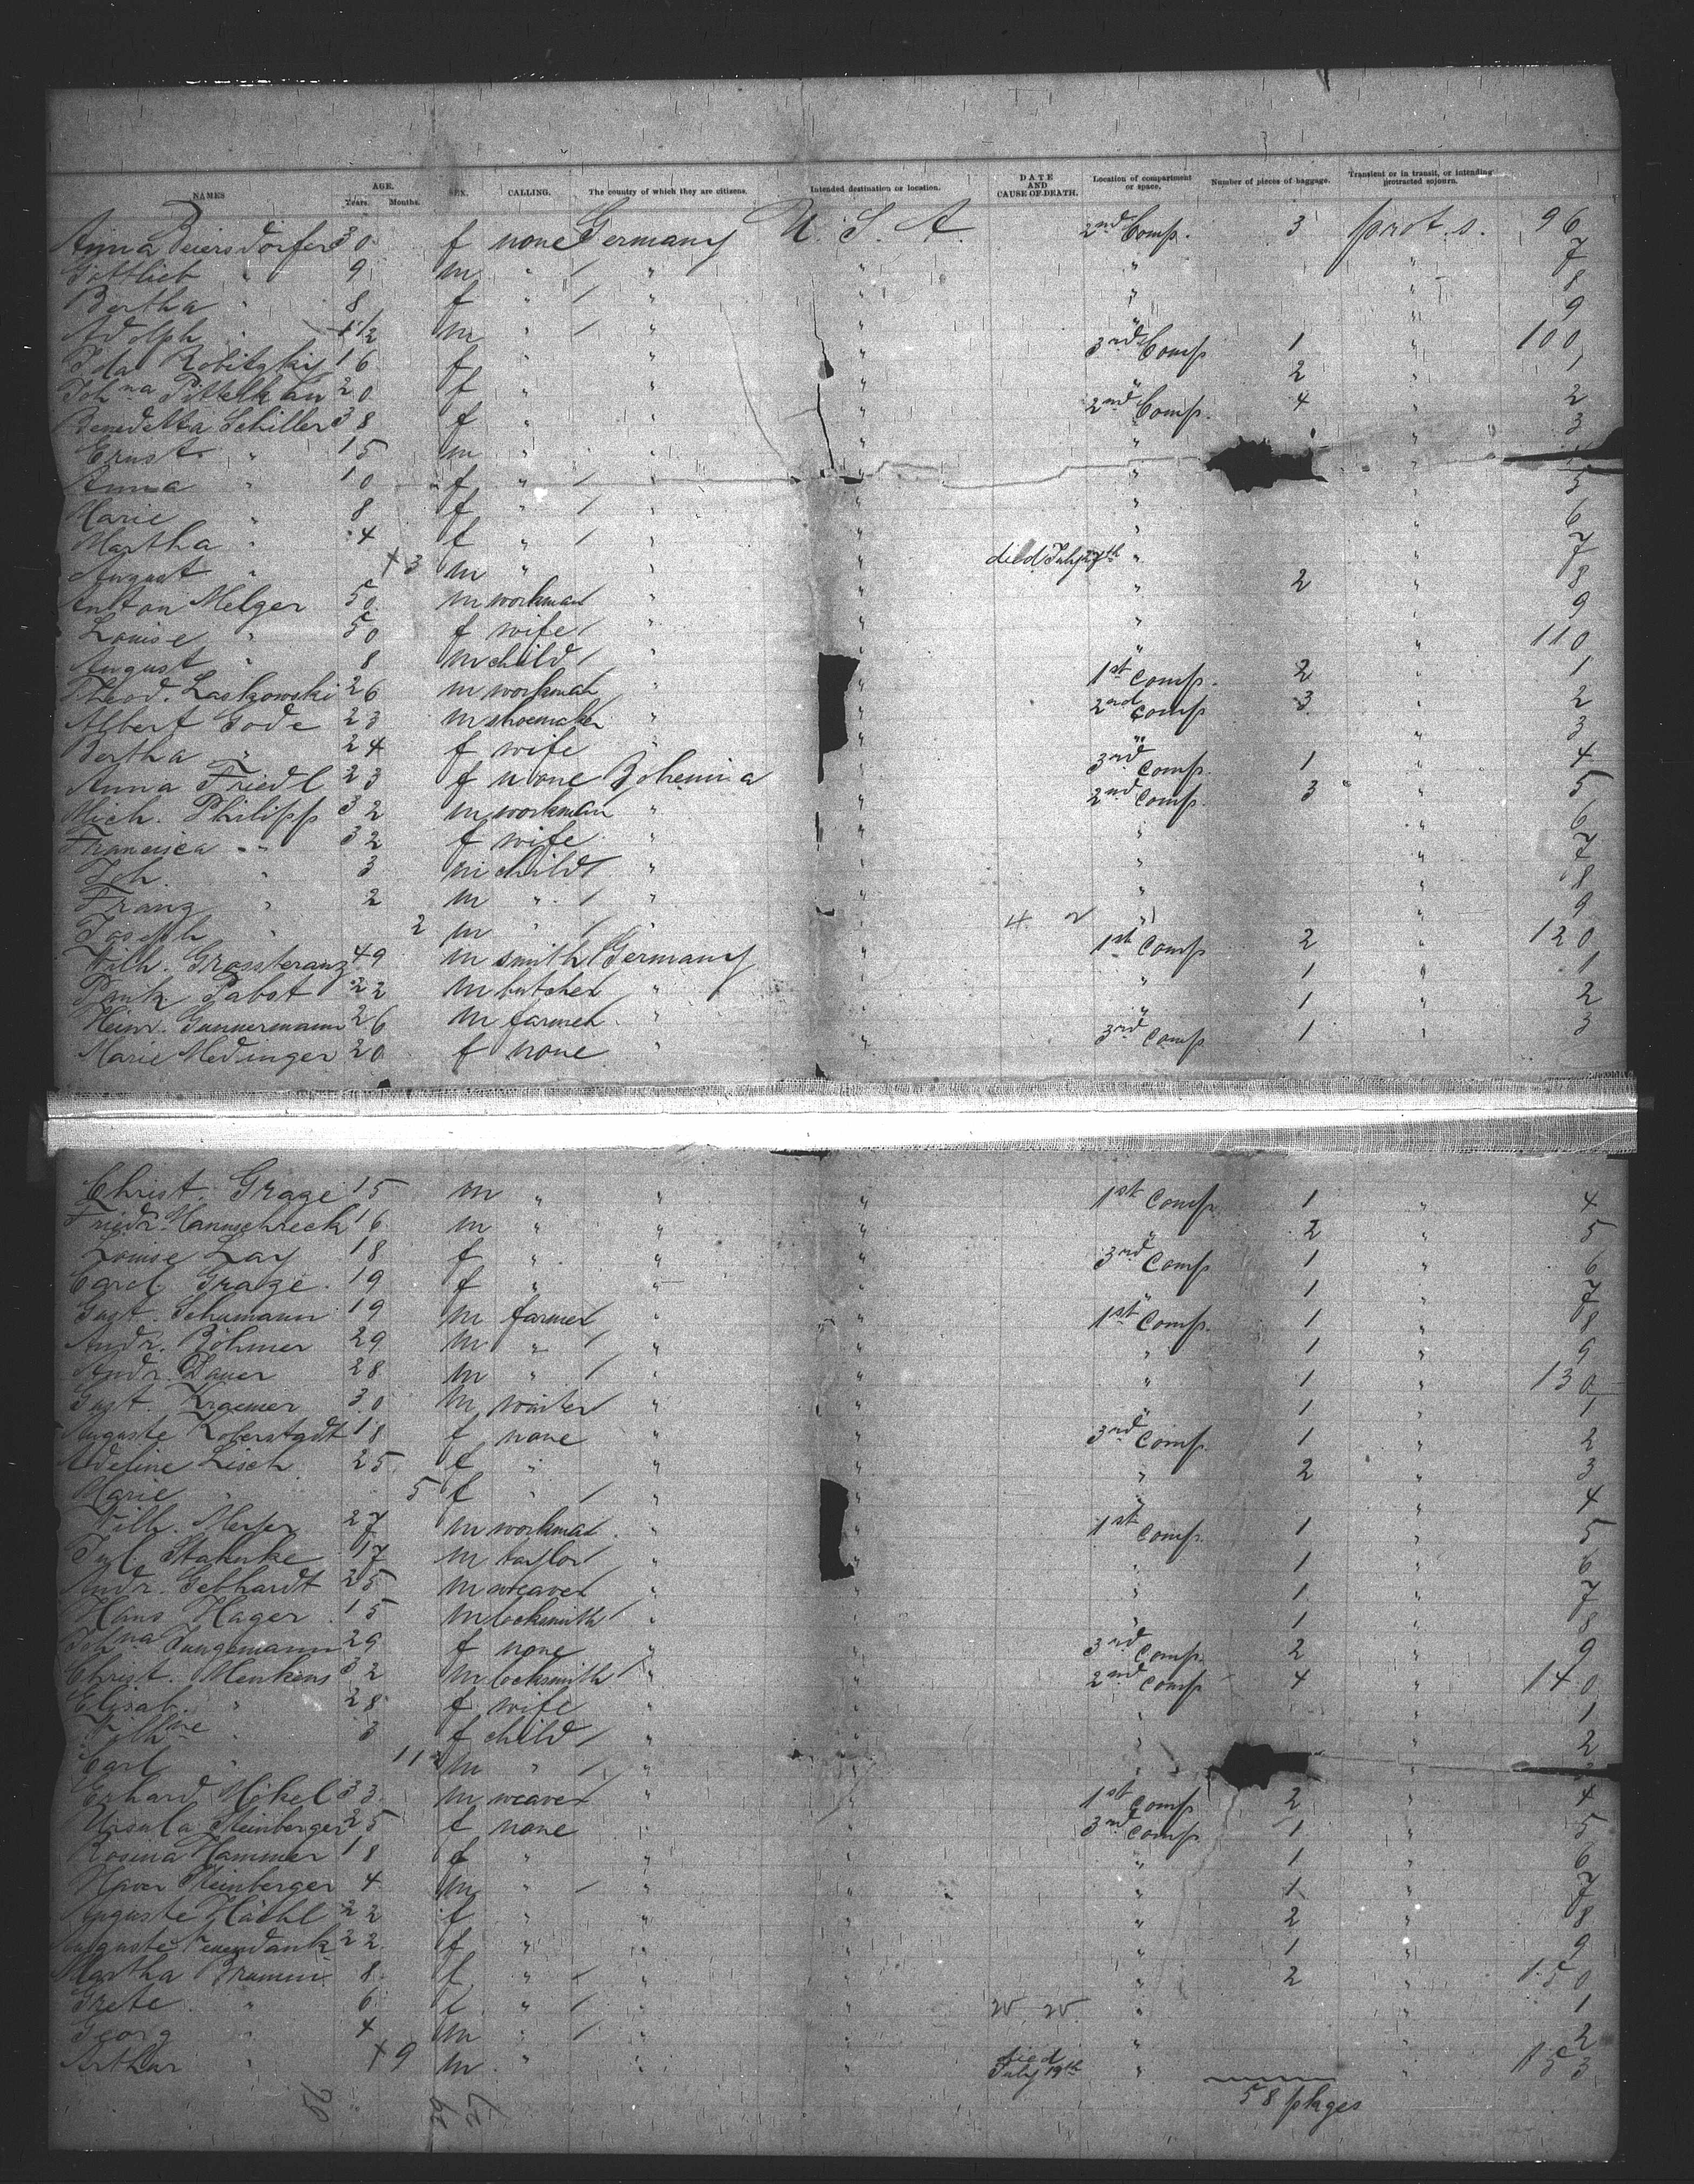 NAMES AGE. Years. Months. SEX. CALLING. The country of which they are citizens. Intended destination or location. DATE AND CAUSE OF DEATH. Location of compartment or space. Number of pieces of baggage. Transient or in transit, or intending protracted sojourn.
Anna Beiersdorfer 30 f none Germany U. S. A. 2nd Comp. 3 prot. s. 96
Gottlieb " 9 m " / " " " " 7
Bertha " 8 f " / " " " " 8
Adolph " 1 1/2 m " / " " " " 9
Ida Robitzky 16 f " " " 3rd Comp 1 " 100
Johna Pittelkau 20 f " " " " 2 " 1
Benedikta Schiller 38 f " " " 2nd Comp. 4 " 2
Ernst " 15 m " " " " " 3
Anna " 10 f " / " " " "
Marie " 8 f " / " " " " 5
Martha " 4 f " / " " " " 6
August " + 3 m " " " died July 27th " " 7
Anton Melger 50 m workman " " " 2 " 8
Louise " 50 f wife / " " " " 9
August " 8 m child / " " " " 110
Theod. Laskowski 26 m workman " " 1st Comp. 2 " 1
Albert Gode 23 m shoemaker " " 2nd Comp 3 " 2
Bertha " 24 f wife " " " " 3
Anna Friedl 23 f none Bohemia " 3rd Comp. 1 " 4
Mich. Philipp 32 m workman " " 2nd Comp. 3 " 5
Francisca " 32 f wife " " " " 6
Joh. " 3 m child / " " " " 7
Franz " 2 m " / " " " " 8
Joseph " 2 m " / " " " " 9
Wilh. 49 m smith Germany " 1st Comp 2 " 120
Pabst 22 m butcher " " " 1 " 1
Heinr. Gunnermann 26 m farmer " " " 1 " 2
Marie Medinger 20 f none " " 3rd Comp 1 " 3
Christ. Graze 15 m " " " 1st Comp 1 " 4
Friedr. Hannschreck 16 m " " " " 2 " 5
Louise Lay 18 f " " " 3rd Comp 1 " 6
Carol. Graze 19 f " " " " 1 " 7
Gust. Schumann 19 m farmer " " 1st Comp. 1 " 8
Andr. Böhmer 29 m " / " " " 1 " 9
Andr. Dauer 28 m " / " " " 1 " 130
Gust. Kraemer 30 m waiter " " " 1 " 1
Auguste Koberstadt 18 f none " " 3rd Comp. 1 " 2
Adeline Lisch 25 f " " " " 2 " 3
Marie " 5 f " / " " " " 4
Wilh. Meyer 27 m workman " " 1st Comp. 1 " 5
Jul. Stahnke 17 m taylor / " " " 1 " 6
Andr. Gebhardt 25 m weaver " " " 1 " 7
Hans Hager 15 m locksmith / " " " 1 " 8
Johna Jungemann 29 f none " " 3rd Comp. 2 " 9
Christ. Menkens 32 m locksmith / " " 2nd Comp 4 " 140
Elisab. " 28 f wife " " " " 1
Wilhne " 3 f child / " " " " 2
Carl " 11 m " / " " " "
Erhard Hökel 33 m weaver " " 1st Comp 2 " 4
Ursula Steinberger 25 f none " " 3rd Comp. 1 " 5
Rosina Hammer 18 f " " " " 1 " 6
Xaver Steinberger 4 m " / " " " 1 " 7
Auguste Hächl 22 f " " " " 2 " 8
Auguste 22 f " " " " 1 " 9
Martha Brumm 8 f " / " " " 2 " 150
Grete " 6 f " / " " " " 1
Georg " 4 m " / " " " " 2
Arthur " + 9 m " " " died July 19th " " 153
58 pkges